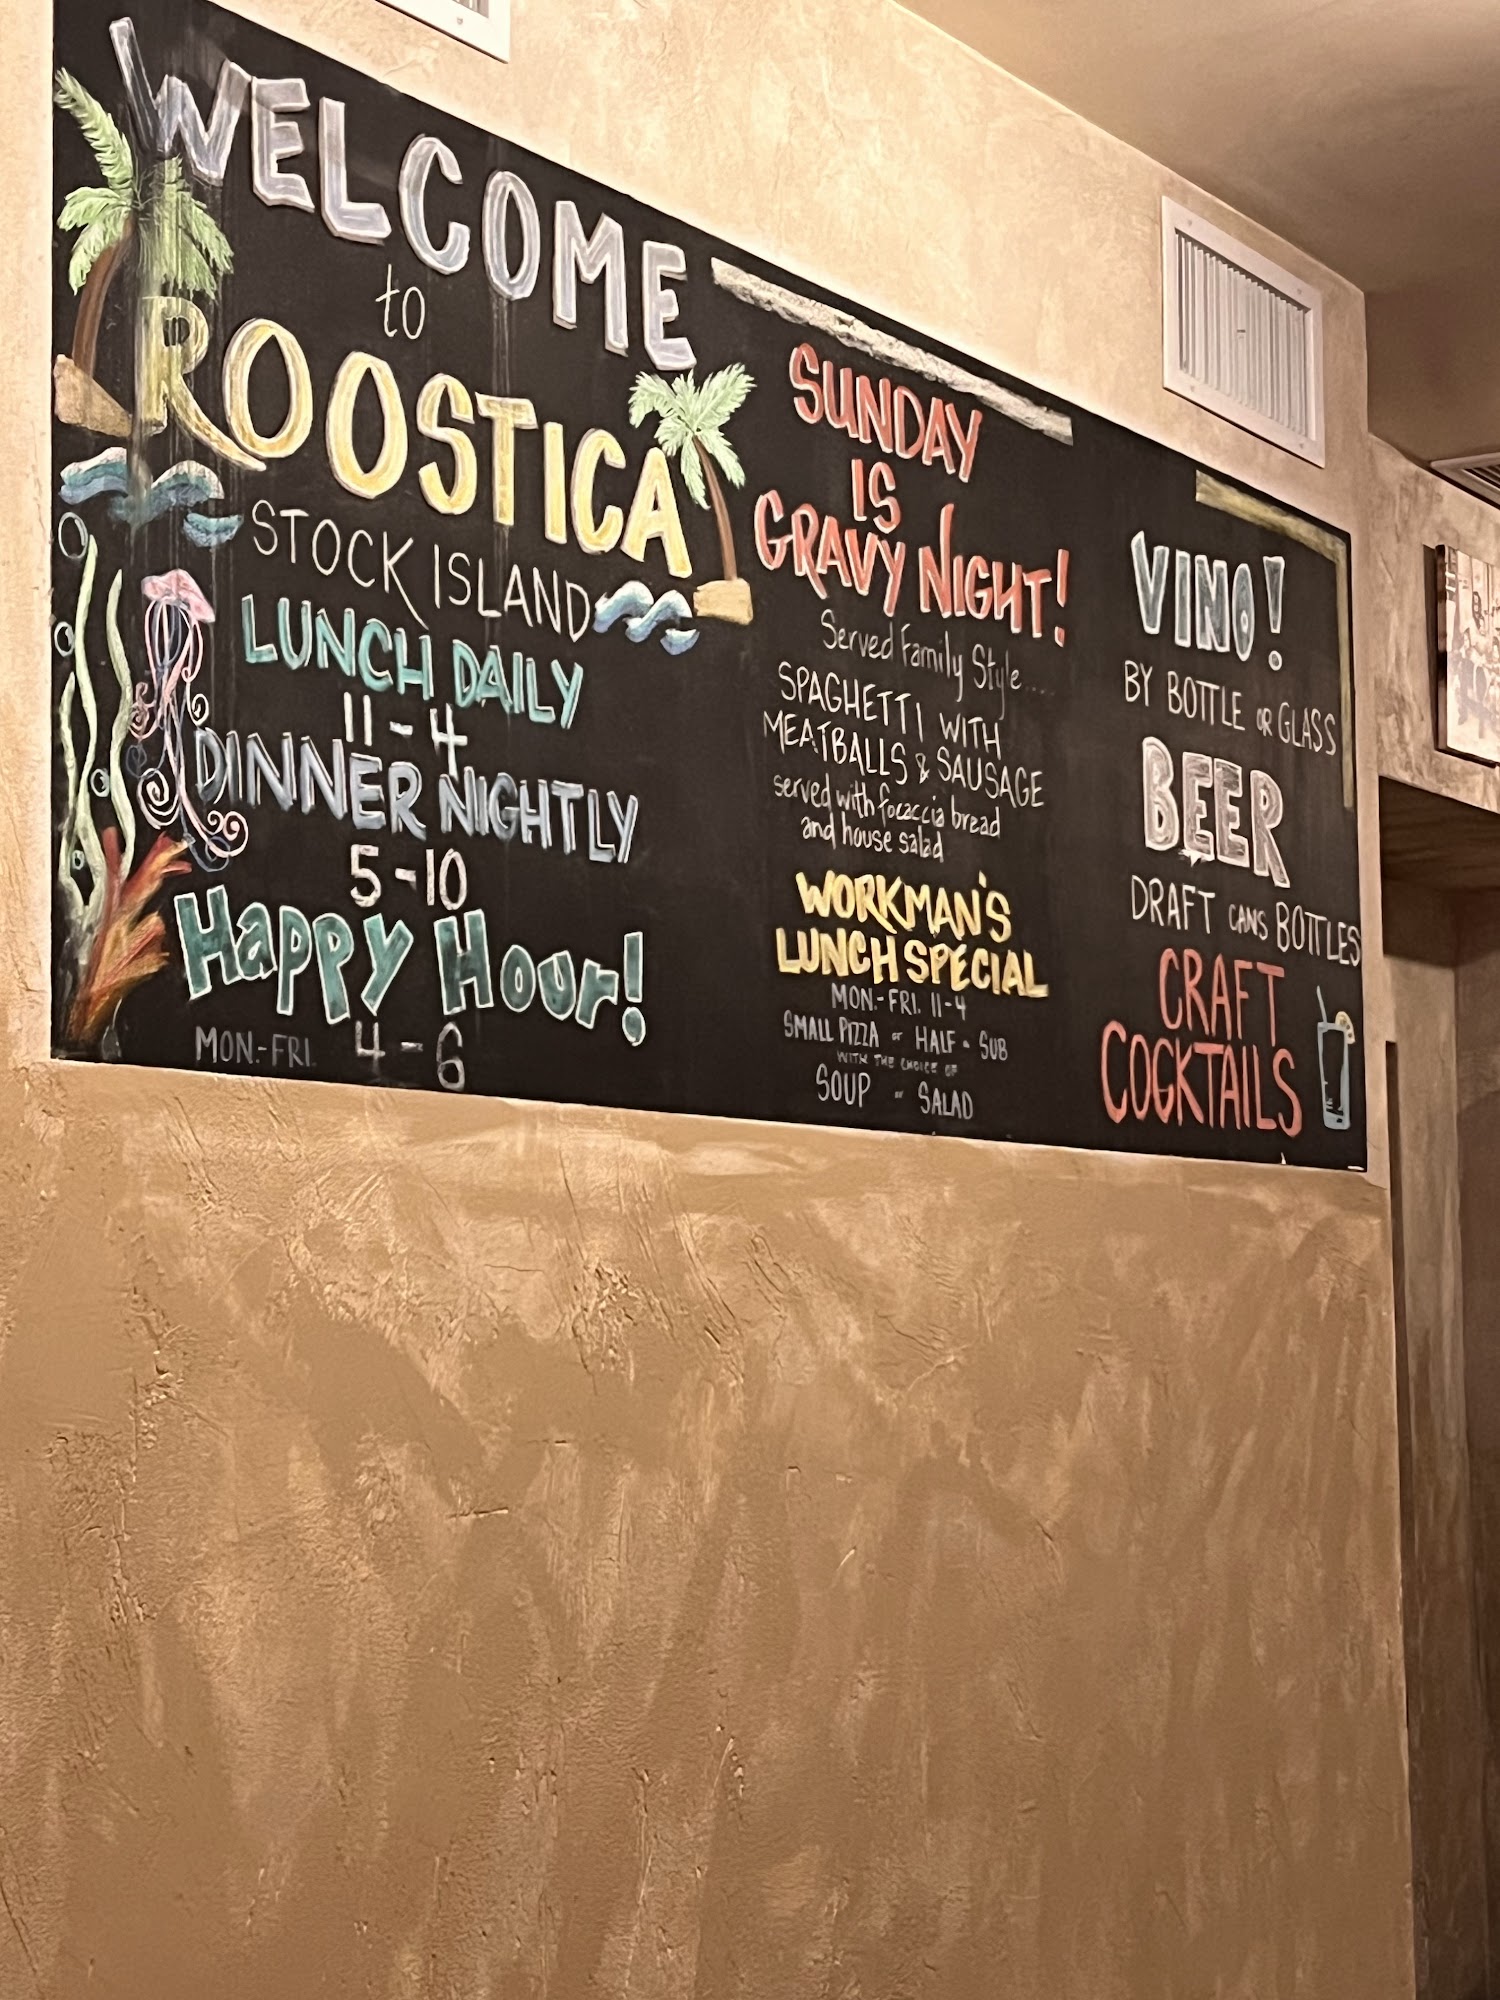 WELCOME
to
ROOSTICA
STOCK ISLAND
LUNCH DAILY
11-4
DINNER NIGHTLY
5-10
Happy Hour!
MON.-FRI. 4-6
SUNDAY
IS
GRAVY NIGHT!
Served Family Style....
SPAGHETTI WITH
MEATBALLS & SAUSAGE
served with focaccia bread
and house salad
WORKMAN'S
LUNCH SPECIAL
MON.-FRI. 11-4
SMALL PIZZA or HALF - SUB
WITH THE CHOICE OF
SOUP or SALAD
VINO!
BY BOTTLE OR GLASS
BEER
DRAFT CANS BOTTLES
CRAFT
COCKTAILS